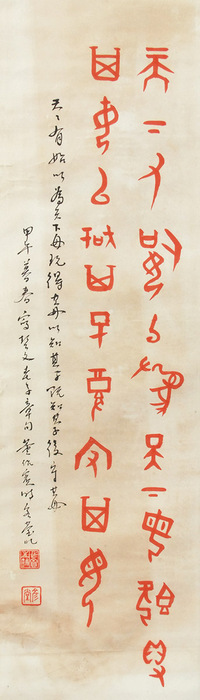 天下又始以為天下母既得
其母以知其子復守其母
天下有始以為天下母既得其母以知其子既知其子復守其母
甲午暮春寫楚文老子章句董作賓時客臺北